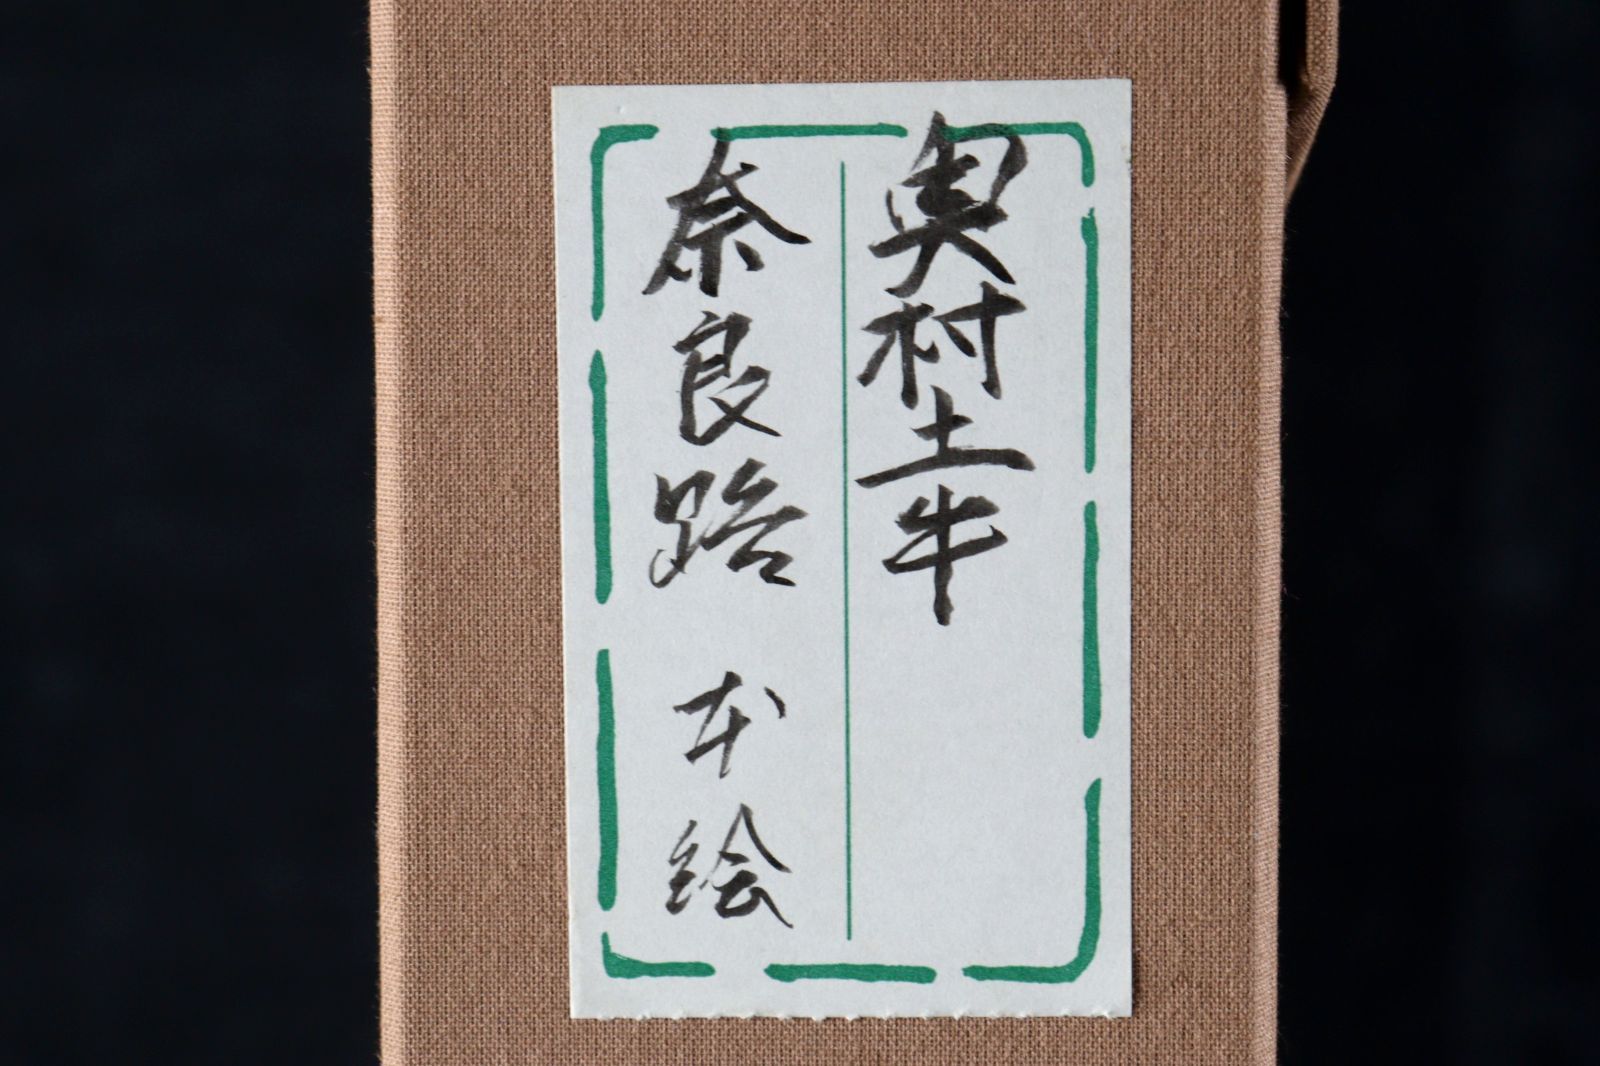 奥村土牛
奈良路 本絵